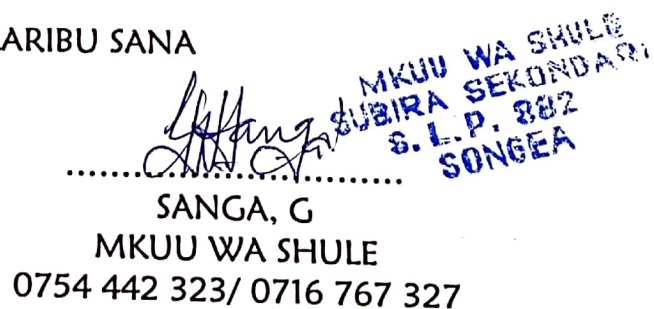 ARIBU SANA
MKUU WA SHULE
SUBIRA SEKONDARI
S. L. P. 882
SONGEA
SANGA, G
MKUU WA SHULE
0754 442 323/ 0716 767 327